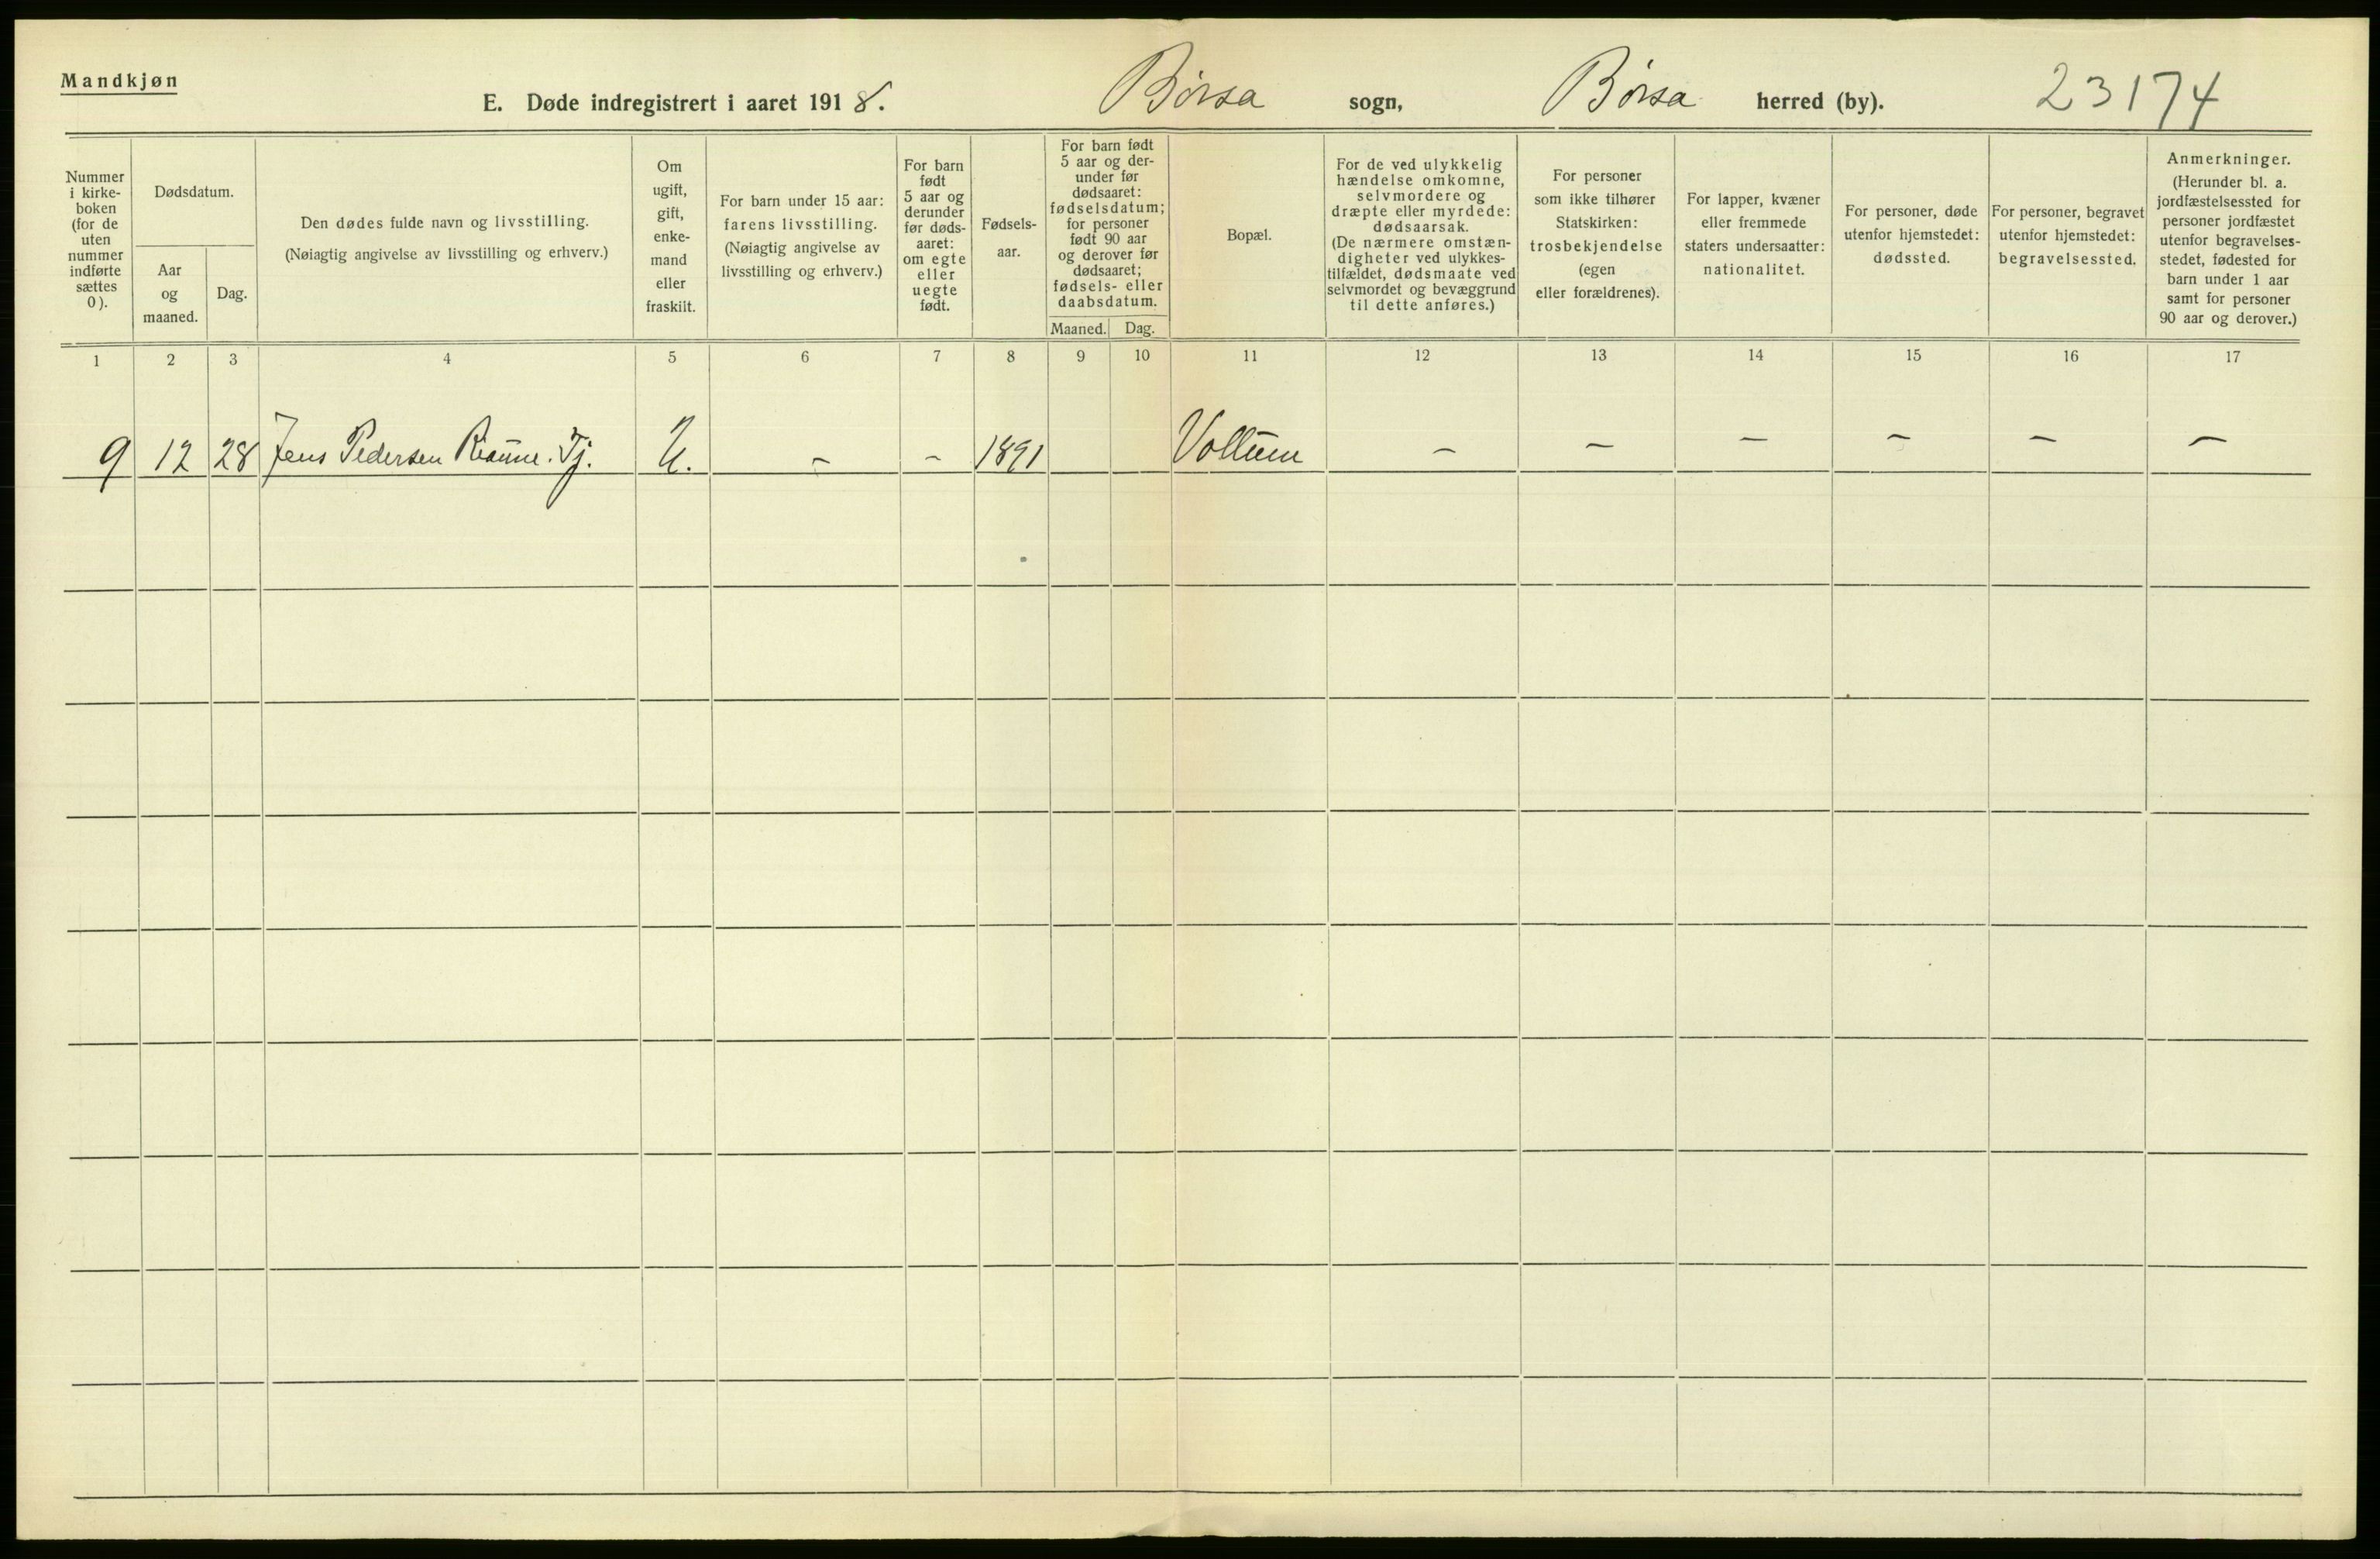 Mandkjøn
E. Døde indregistrert i aaret 1918. Børsa sogn, Børsa herred (by). 23174
Nummer
i kirke-
boken
(for de
uten
nummer
indførte
sættes
0).
Dødsdatum.
Aar
og
maaned.
Dag.
Den dødes fulde navn og livsstilling.
(Nøiagtig angivelse av livsstilling og erhverv.)
Om
ugift,
gift,
enke-
mand
eller
fraskilt.
For barn under 15 aar:
farens livsstilling.
(Nøiagtig angivelse av
livsstilling og erhverv.)
For barn
født
5 aar og
derunder
før døds-
aaret:
om egte
eller
uegte
født.
Fødsels-
aar.
For barn født
5 aar og der-
under før
dødsaaret:
fødselsdatum;
for personer
født 90 aar
og derover før
dødsaaret;
fødsels- eller
daabsdatum.
Maaned. Dag.
Bopæl.
For de ved ulykkelig
hændelse omkomne,
selvmordere og
dræpte eller myrdede:
dødsaarsak.
(De nærmere omstæn-
digheter ved ulykkes-
tilfældet, dødsmaate ved
selvmordet og bevæggrund
til dette anføres.)
For personer
som ikke tilhører
Statskirken:
trosbekjendelse
(egen
eller forældrenes).
For lapper, kvæner
eller fremmede
staters undersaatter:
nationalitet.
For personer, døde
utenfor hjemstedet:
dødssted.
For personer, begravet
utenfor hjemstedet:
begravelsessted.
Anmerkninger.
(Herunder bl. a.
jordfæstelsessted for
personer jordfæstet
utenfor begravelses-
stedet, fødested for
barn under 1 aar
samt for personer
90 aar og derover.)
1 2 3 4 5 6 7 8 9 10 11 12 13 14 15 16 17
9 12 28 Jens Pedersen Tj. U. - - 1891 - - - - - -